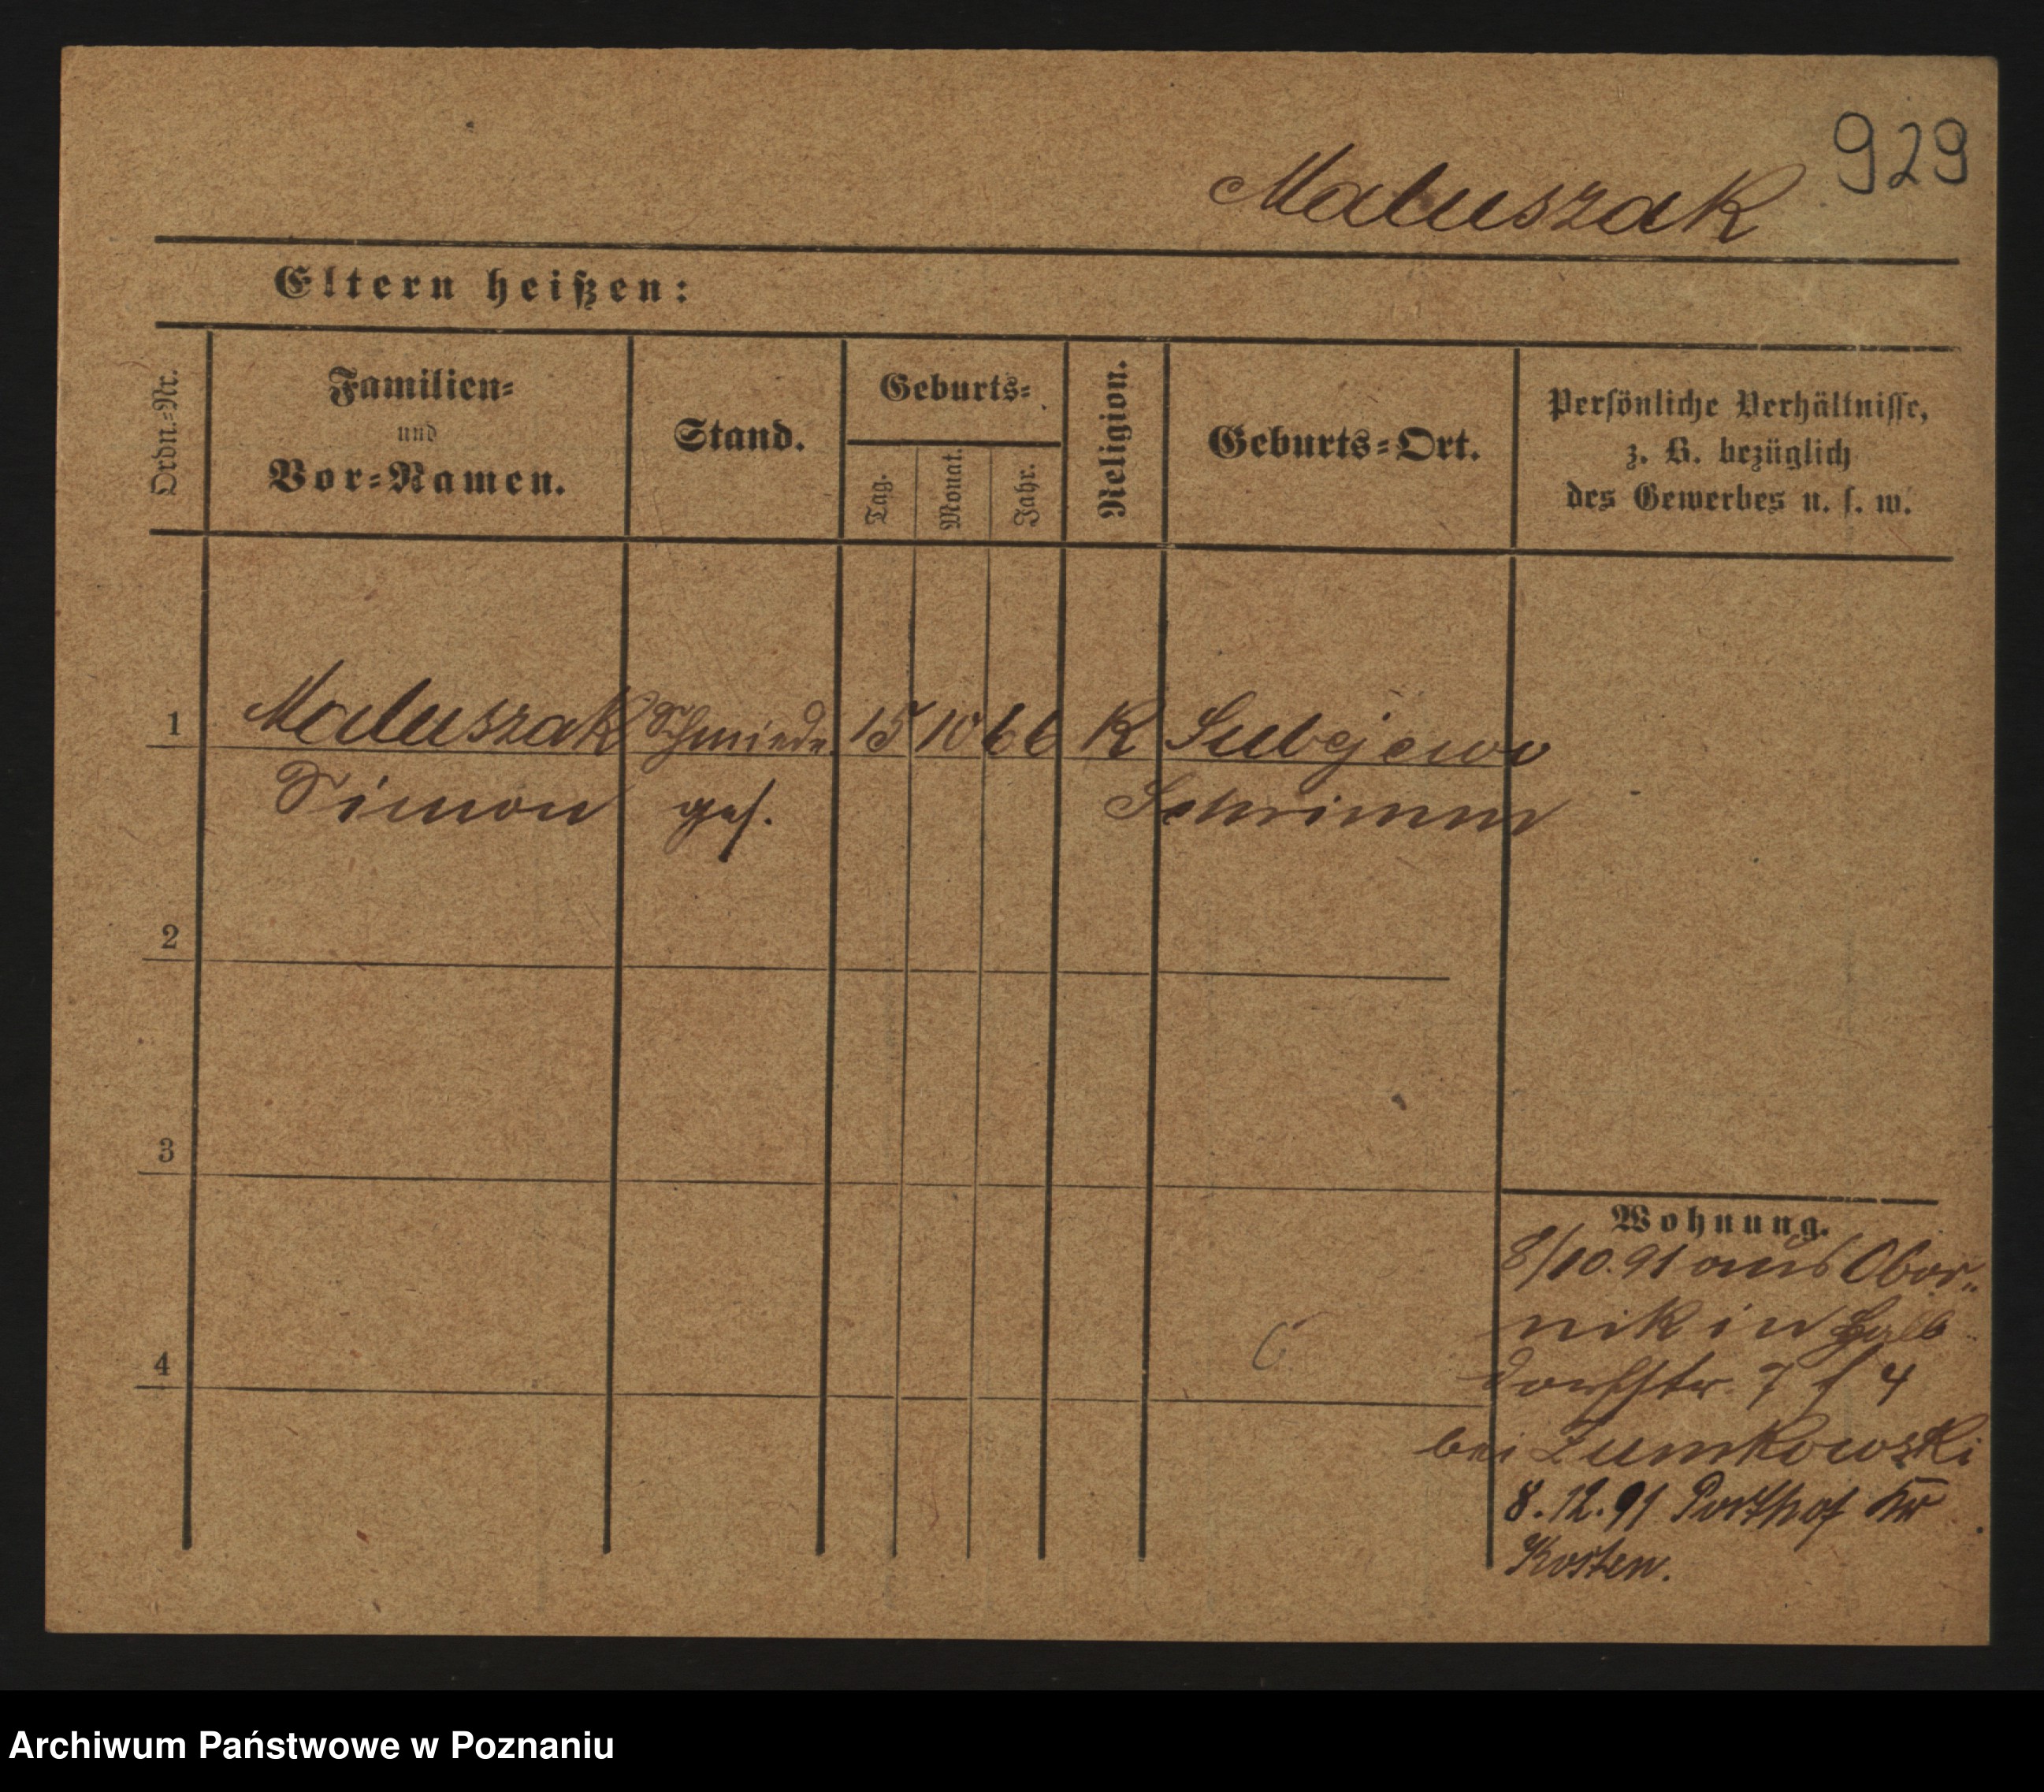 929
Matuszak
Eltern heißen:
Ordn.=Nr.
Familien=
und
Vor=Namen.
Stand.
Geburts=
Tag.
Monat.
Jahr.
Religion.
Geburts=Ort.
Persönliche Verhältnisse,
z. B. bezüglich
des Gewerbes u. s. w.
1 Matuszak Schmiede 15 10 66 K
Simon ges. Schrimm
2
3
4
Wohnung.
8/10.91 aus Obor-
nik in Halb
dorfstr. 7
bei
8.12.91 Kr
Kosten.
Archiwum Państwowe w Poznaniu